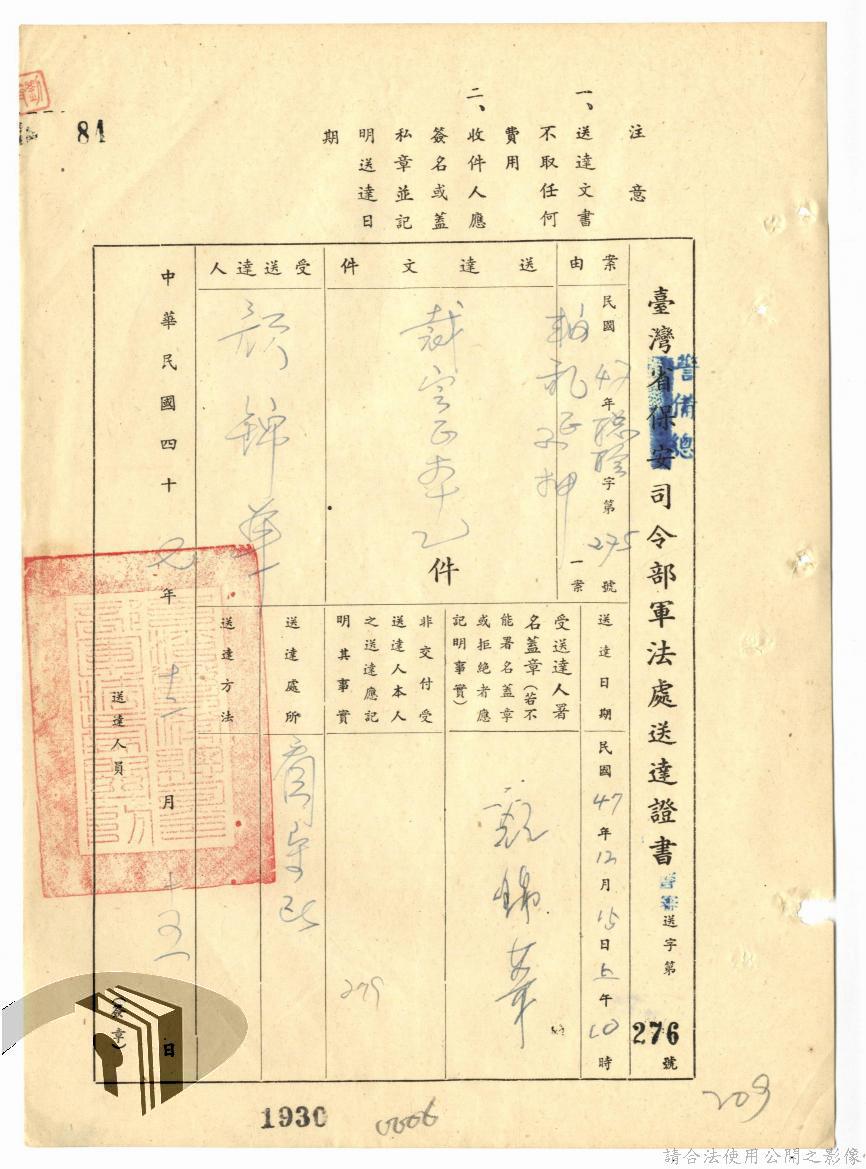 注意
一、送達文書
不取任何
費用
二、收件人應
簽名或蓋
私章並記
明送達日
期
84
臺灣省保安司令部軍法處送達證書
警備總
送字第276號
案由
民國47年 字第275號
一案
送達文件
裁定正本乙件
受送達人
顏錦華
送達日期
民國47年12月15日上午10時
受送達人署
名蓋章(若不
能署名蓋章
或拒絕者應
記明事實)
顏錦華
非交付受
送達人本人
之送達應記
明其事實
279
送達處所
送達方法
中華民國四十七年十二月十五日
送達人員
(簽章)
1930
0006
209
請合法使用公開之影像